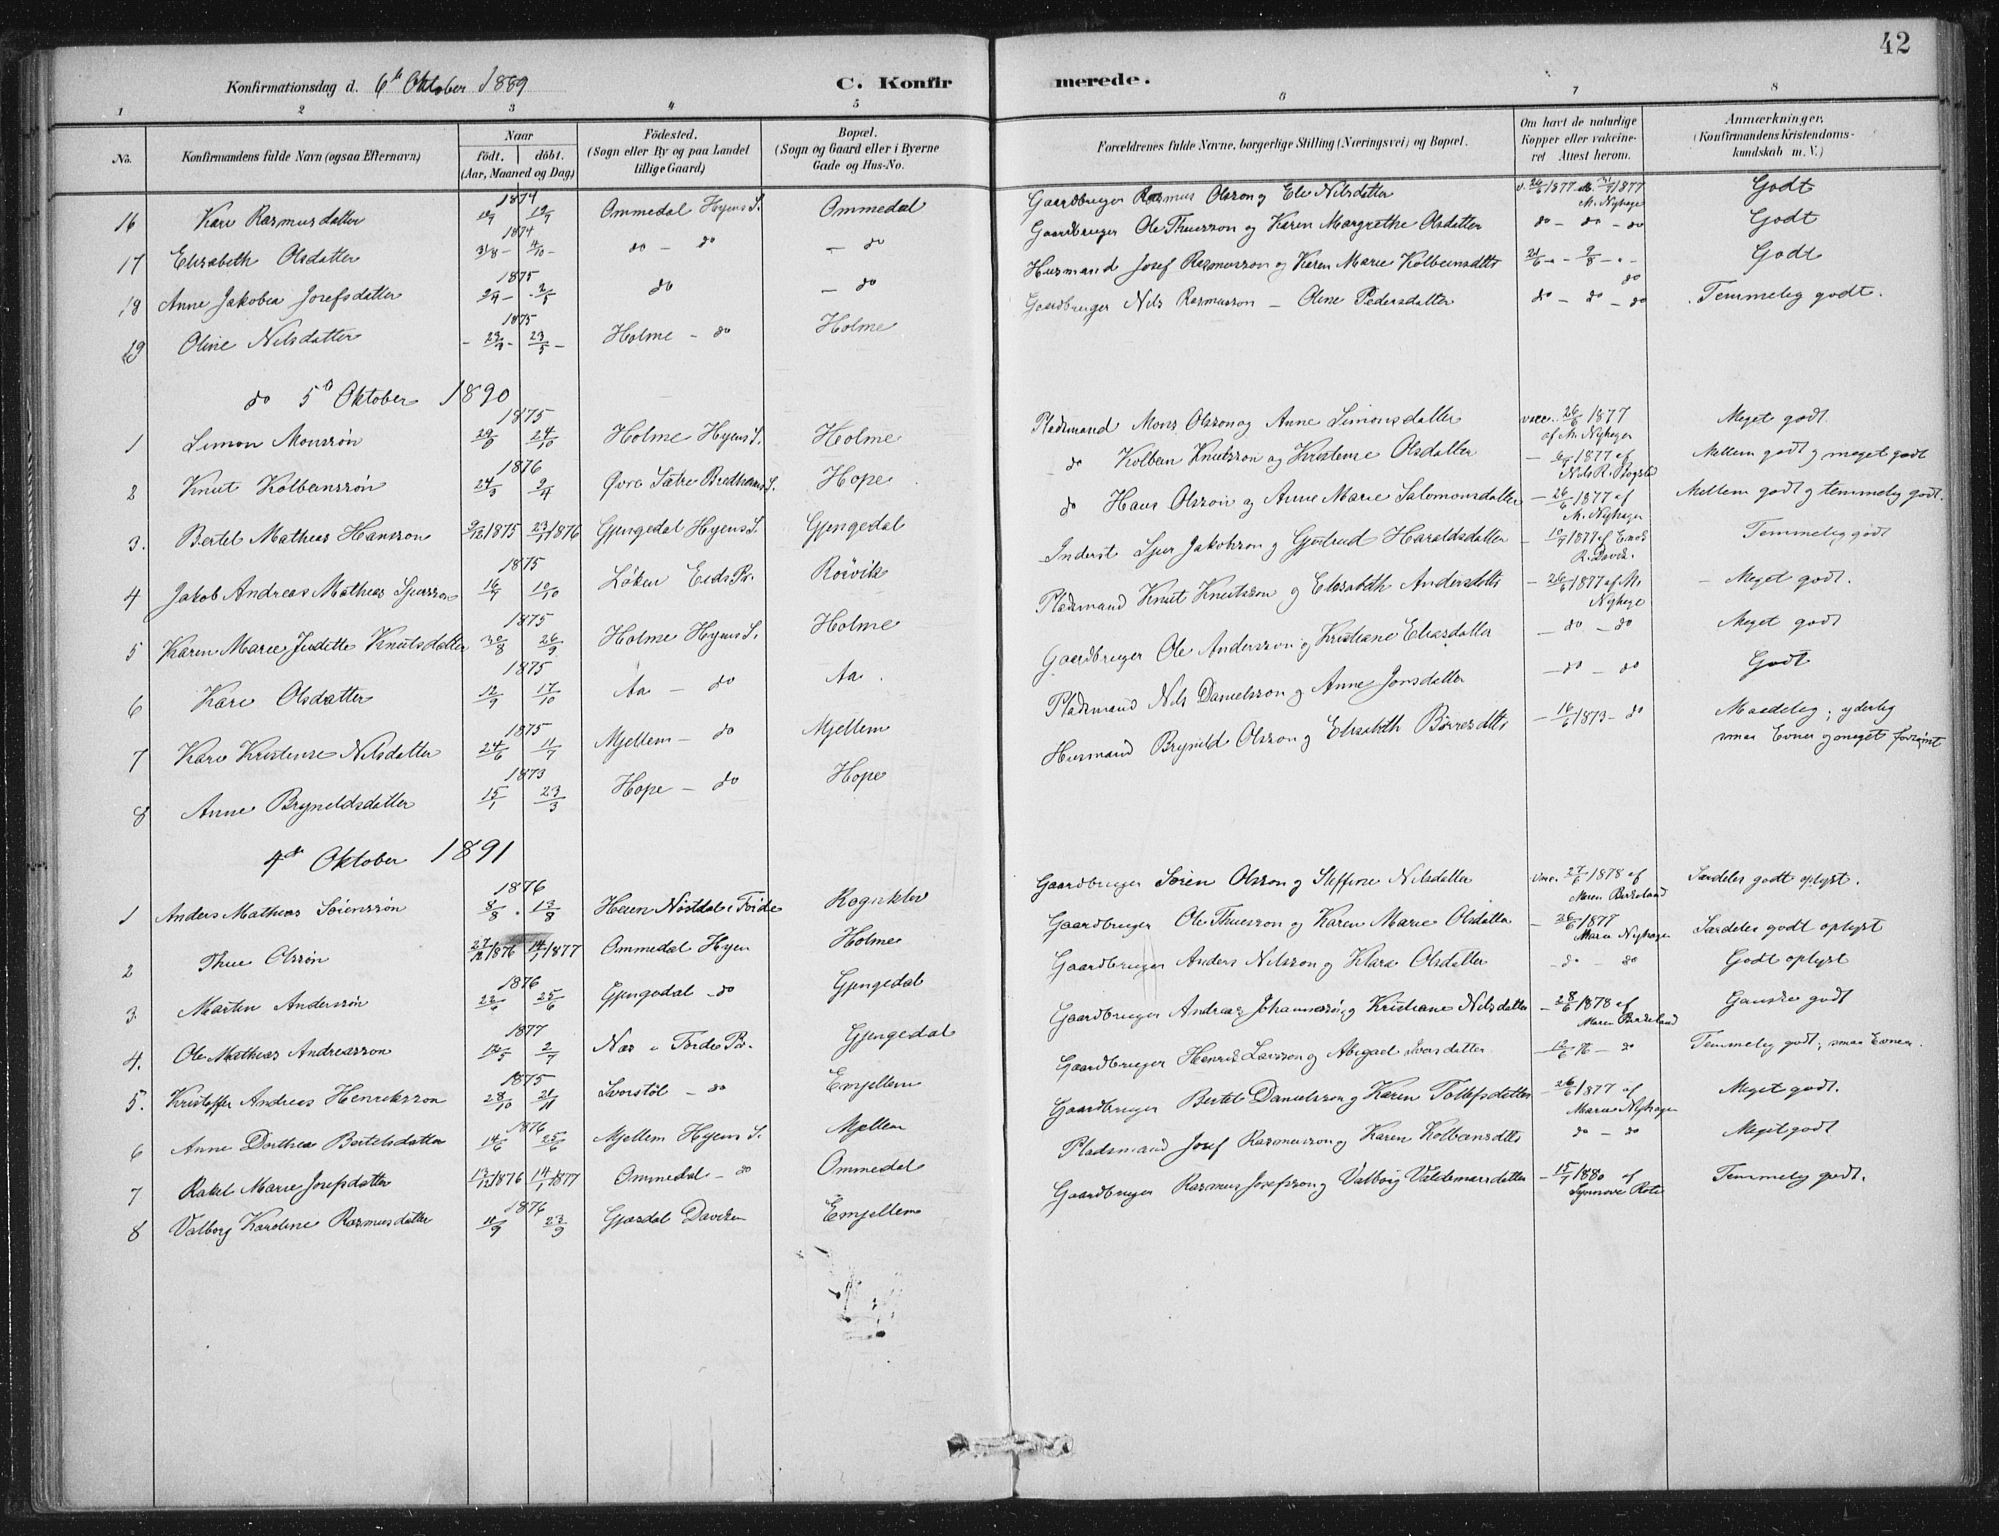 42
Konfirmationsdag d. 6te Oktober 1889 C. Konfirmerede.
1 2 3 4 5 6 7 8
No. Konfirmandens fulde Navn (ogsaa Efternavn) Naar født. døbt. (Aar, Maaned og Dag) Födested. (Sogn eller By og paa Landet tillige Gaard) Bopæl. (Sogn og Gaard eller i Byerne Gade og Hus-No. Forældrenes fulde Navne, borgerlige Stilling (Næringsvei) og Bopæl. Om havt de naturlige Kopper eller vakcineret Attest herom. Anmærkninger. (Konfirmandens Kristendomskundskab m. V.)
16 Kari Rasmusdatter 1874 Ommedal Hyens S. Ommedal Gaardbruger Rasmus Olsson og Eli Nilsdatter v. 26/6 1877 M. Nyhage Godt
17 Elisabeth Olsdatter 1874 31/8 - 4/10 - do - do - do Gaardbruger Ole Thuesson og Karen Margrethe Olsdatter do - do - do Godt
18 Anne Jakobea Josefsdatter 1875 do - do Husmand Josef Rasmusson og Karen Marie Kolbeinsdtts Godt
19 Oline Nilsdatter 1875 23/5 - Holme - do Holme Gaardbruger Nils Rasmusson - Oline Pedersdatter do - do - do Temmelig godt.
do 5te Oktober 1890
1 Simon Monssøn 1875 24/10 Holme Hyens S. Holme Pladsmand Mons Olsson og Anne Simonsdatter vacc. 26/6 1877 af M. Nyhagen Meget godt.
2 Knut Kolbeinssøn 1876 24/3 2/4 Øvre Sætre Bredheims S. Hope do Kolbein Knutsson og Kristense Olsdatter 1877 af Nils R. Mellem godt og meget godt
3. Bertel Mathias Hansson 9/12 1875 23/1 1876 Gjengedal Hyens S. Gjengedal do Hans Olsson og Anne Marie Salomonsdatter - 26/6 1877 af M. Nyhagen Mellem godt og temmelig godt.
4 Jakob Andreas Mathias Spersson 1875 16/9 10/10 Løken Eids Pr. Roivik Inderst Sper Jakobson og Gjertrud Haraldsdatter - 10/7 1877 af R. David. Temmelig godt
5 Karen Marie Juditte Knutsdatter 1875 30/8 26/9 Holme Hyens S. Holme Pladsmand Knut Knutsson og Elisabeth Andersdtts - 26/6 1877 af M. Nyhage - Meget godt.
6 Kari Olsdatter 1875 12/9 17/10 Aa - do Aa. Gaardbruger Ole Andersson og Kristiane Eliasdatter - do - do Meget godt
7 Kari Kristense Nilsdatter 1875 24/6 11/7 Mjellem - do Mjellem Pladsmand Nils Danielsson og Anne Jonsdatter - do - do Godt
8 Anne Bryneldsdatter 1873 15/1 23/3 Hope - do Hope Husmand Bryneld Olsson og Elisabeth Børresdtts - 16/6 1873 - do Maadelig; yderlig smaa Evner og meget forsømt
4de Oktober 1891
1 Anders Mathias Sørenssøn 1876 8/8 . 13/8 Heien Nøstdal i Førde Søren Olsson og Steffine Nilsdatter vac. 27/6 1878 af Maren Birkeland Særdeles godt oplyst.
2 Thue Olssøn 27/12 1876 14/1 1877 Ommedal Hyen Holme Gaardbruger Ole Thuesson og Karen Marie Olsdatter - 26/6 1877 Maren Nyhagen Særdeles godt oplyst
3. Martin Anderssøn 1876 25/6 Gjengedal - do Gjengedal Gaardbruger Anders Nilsson og Klara Olsdatter - do - do Godt oplyst
4. Ole Mathias Andreasson 1877 2/7 Nes i Førde Pr. Gjengedal Gaardbruger Andreas Johannessøn og Kristiane Nilsdatter - 28/6 1878 af Maren Birkeland Ganske godt
5. Kristoffer Andreas Henriksson 1875 28/10 21/11 - do Emjellem Gaardbruger Henrik Larsson og Abigael Iversdatter - 12/6 76 - do Temmelig godt, smaa Evner.
6 Anne Dorthea Bertelsdatter 1876 14/6 25/6 Mjellem Hyens S. Mjellem Gaardbruger Bertel Danielsson og Karen Tollefsdatter - 26/6 1877 af Maren Nyhagen Meget godt.
7 Rakel Marie Josefsdatter 13/12 1876 14/1 1877 Ommedal - do Ommedal Pladsmand Josef Rasmusson og Karen Kolbeinsdtts do - do Meget godt
8 Valborg Karoline Rasmusdatter 1876 11/9 23/9 Gjesdal Daviken Emjellem Gaardbruger Rasmus Josefsson og Valborg Valdemarsdatter - 15/7 1880 af Synnøve Rote Temmelig godt.